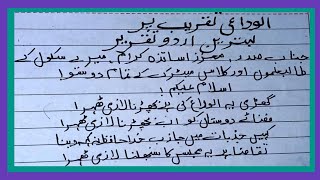 الوداعی تقریب پر
بہترین اردو تقریر
جناب صدر، معزز اساتذہ کرام، میرے سکول کے
طالبعلموں اور کلاس میٹرک کے تمام دوستو!
اسلام علیکم!
گھڑی یہ الوداع کی ہے بچھڑنا لازمی ٹھہرا
فضائے دوستاں کو اب بچھڑنا لازمی ٹھہرا
کہیں جذبات میں جاذب خدا حافظ نہ کہہ دینا
تقاضا ہے یہ محفل کا سنبھلنا لازمی ٹھہرا